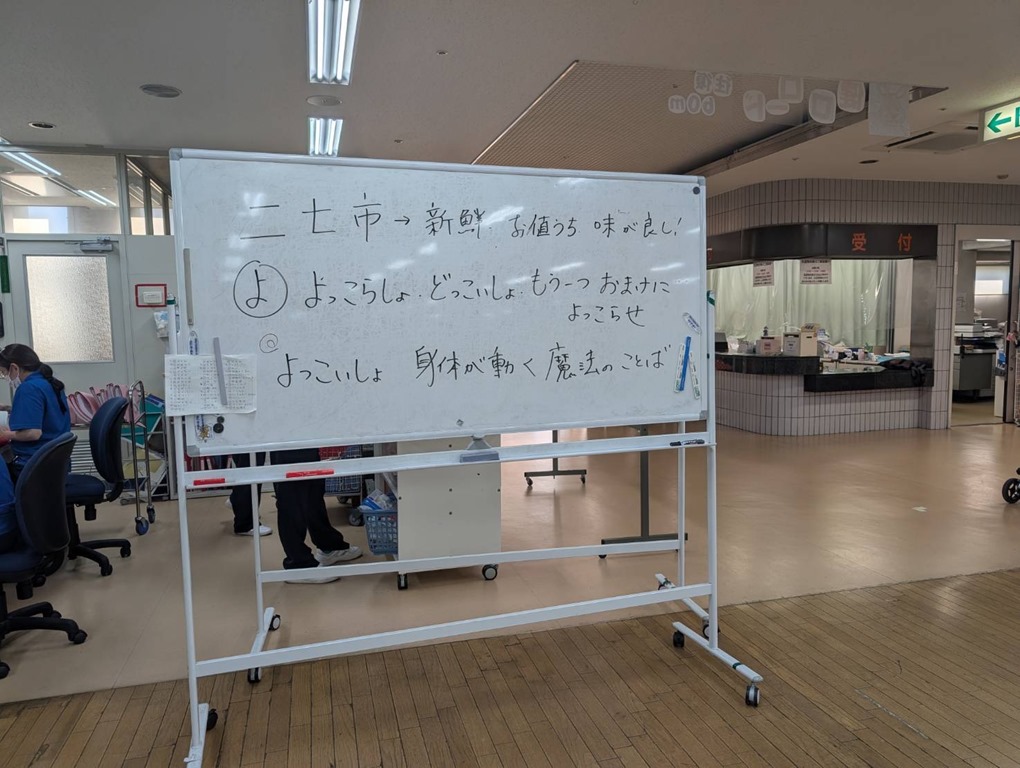 二七市→新鮮. お値うち 味が良し!
よ よっこらしょ. どっこいしょ. もう一つ おまけに
よっこらせ
◎
よっこいしょ 身体が動く魔法のことば
受付
往復
60m
←